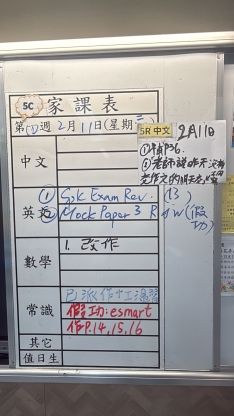 5C 家課表
第 週2月11日(星期二)
中文
英文 ① G5k Exam Rev. (13)
② Mock Paper 3 R & W (假功)
數學 1. 改作
常識
假功:esmart
作P.14,15,16
其它
值日生
5R 中文 2月11日
①補P36
②老師說昨天沒